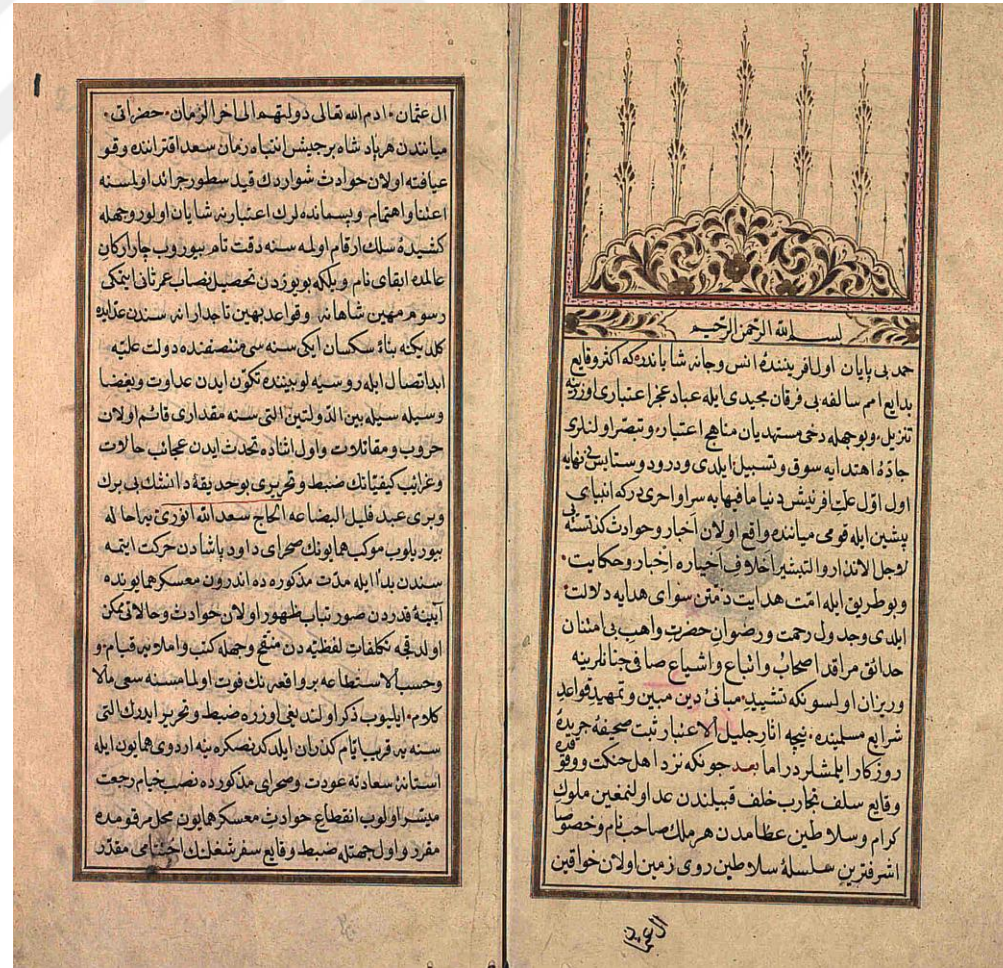 بسم الله الرحمن الرحيم
حمد بی پایان اول افریننده انس وجانه شایاندر که اکثر وقایع
بدایع امم سالفه بی فرقان مجیدی ایله عباد عجز اعتباری اوزرینه
تنزیل، وبو جمله دخی مستهدیان مناهج اعتبار، وتبصر اولنلری
جادۀ اهتدایه سوق وتسبیل ایلدی ودرود وستایش بی نهایه
اول اوّل علت افرینش دنیا ما فیهایه سزا واحری در که انبیای
پیشین ایله قومی میاننده واقع اولان اخبار وحوادث کذشته بی
لاجل الانذار والتبشیر اخلاف اخیاره اخبار وحکایت.
وبو طریق ایله امّت هدایت دمتن سوای هدایه دلالت.
ایلدی وجدول رحمت ورضوان حضرت واهب بی امتنان
حدائق مراقد اصحاب واتباع واشیاع صافی جنانلرینه
وریزان اولسونکه تشیید مبانئ دین مبین وتمهید قواعد
شرایع مسلینده، نیچه اثار جلیل الاعتبار ثبت صحیفۀ جریدۀ
روزکار ایلمشلردر اما بعد چونکه نزد اهل حنکت ووقوفده
وقایع سلف تجارب خلف قبیلندن عد اولنمغین ملوک
کرام وسلاطین عظامدن هر ملک صاحب نام وخصوصا
اشرفترین سلسلۀ سلاطین روی زمین اولان خواقین
ال عثمان. ادم الله تعالی دولتهم الی اخر الزمان. حضراتی.
میانندن هر پاد شاه برجیس انتباه زمان سعد اقتراننده وقو
عیافته اولان حوادث شواردک قید سطور جرائد اولمسنه
اعتنا واهتمام وپسماندەلرک اعتبارنه شایان اولور وجهله
کشیدۀ سلک ارقام اولمه سنه دقت تام بیوروب چار ارکان
عالمده ابقای نام وبلکه بو یوزدن تحصیل نصاب عمر ثانی ایتمکی
رسوم مهین شاهانه وقواعد بهین تاجدارانه سندن عدایده
کلدیکنه بناءً سکسان ایکی سنه سی منتصفنده دولت علیّه
ابد اتصال ایله روسیه لو بیننده تکوّن ایدن عداوت وبغضا
وسیله سیله بین الدّولتین التی سنه مقداری قائم اولان
حروب ومقاتلات واول اثناده تحدث ایدن عجائب حالات
وغرایب کیفیّاتک ضبط وتحریری بو حدیقۀ دانشک بی برک
وبری عبد قلیل البضاعه الحاج سعد الله انوری یه احاله
بیوریلوب موکب همایونک صحرای داود پاشادن حرکت ایتمه
سندن بدأ ایله مدّت مذکوره ده اندرون معسکر همایونده
آیینۀ قدردن صورتیاب ظهور اولان حوادث وحالاتی ممکن
اولدیجه تکلفات لفظیّه دن منقح وجهله کتب واملایه قیام. و
وحسب الاستطاعه بر واقعه نک فوت اولمامسنه سعی مالا
کلام. ایلیوب ذکر اولندیغی اوزره ضبط وتحریر ایدرک التی
سنه یه قریب ایّام کذران ایلدکدنصکره ینه اردوی همایون ایله
استانۀ سعادته عودت وصحرای مذکورده نصب خیام رجعت
میسّر اولوب انقطاع حوادث معسکر همایون محل مرقومده
مقرر واول جهتله ضبط وقایع سفر شغلنک اختتامی مقدّر